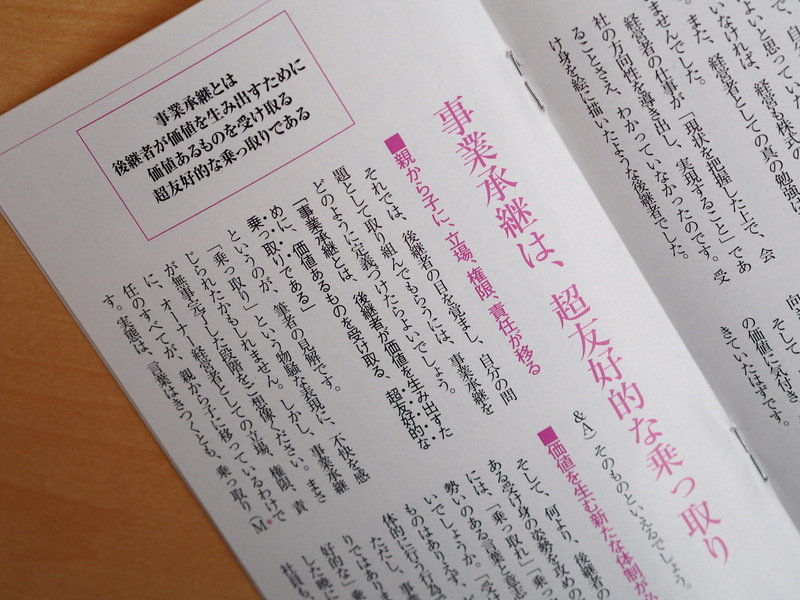 自分
よいと思ってい
いなければ、経営も株式の
また、経営者としての真の勉強は
ませんでした。
経営者の仕事が「現状を把握した上で、会
社の方向性を導き出し、実現すること」であ
ることさえ、わかっていなかったのです。受
け身を絵に描いたような後継者でした。
そして
の価値に気付き
きていたはずです。
事業承継とは
後継者が価値を生み出すために
価値あるものを受け取る
超友好的な乗っ取りである
事業承継は、超友好的な乗っ取り
■親から子に、立場、権限、責任が移る
それでは、後継者の目を覚まし、自分の問
題として取り組んでもらうには、事業承継を
どのように定義づけたらよいでしょう。
「事業承継とは、後継者が価値を生み出すた
めに、価値あるものを受け取る、超友好的な
乗っ取りである」
というのが、筆者の見解です。
「乗っ取り」という物騒な表現に、不快を感
じられたかもしれません。しかし、事業承継
が無事完了した段階をご想像ください。まさ
に、オーナー経営者としての立場、権限、責
任のすべてが、親から子に移っているわけで
す。実態は、言葉はきつくとも、乗っ取り（M*
&A）そのものといえるでしょう。
■価値を生む新たな体制が必
そして、何より、後継者の
ある受け身の姿勢を攻めの
には、「乗っ取れ」「乗っ
勢いのある言葉と意志
いでしょうか。「受
ものはありえず、
体的に行う行為で
ただし、事業
りではありま
好的な」乗
した晩に
社員も